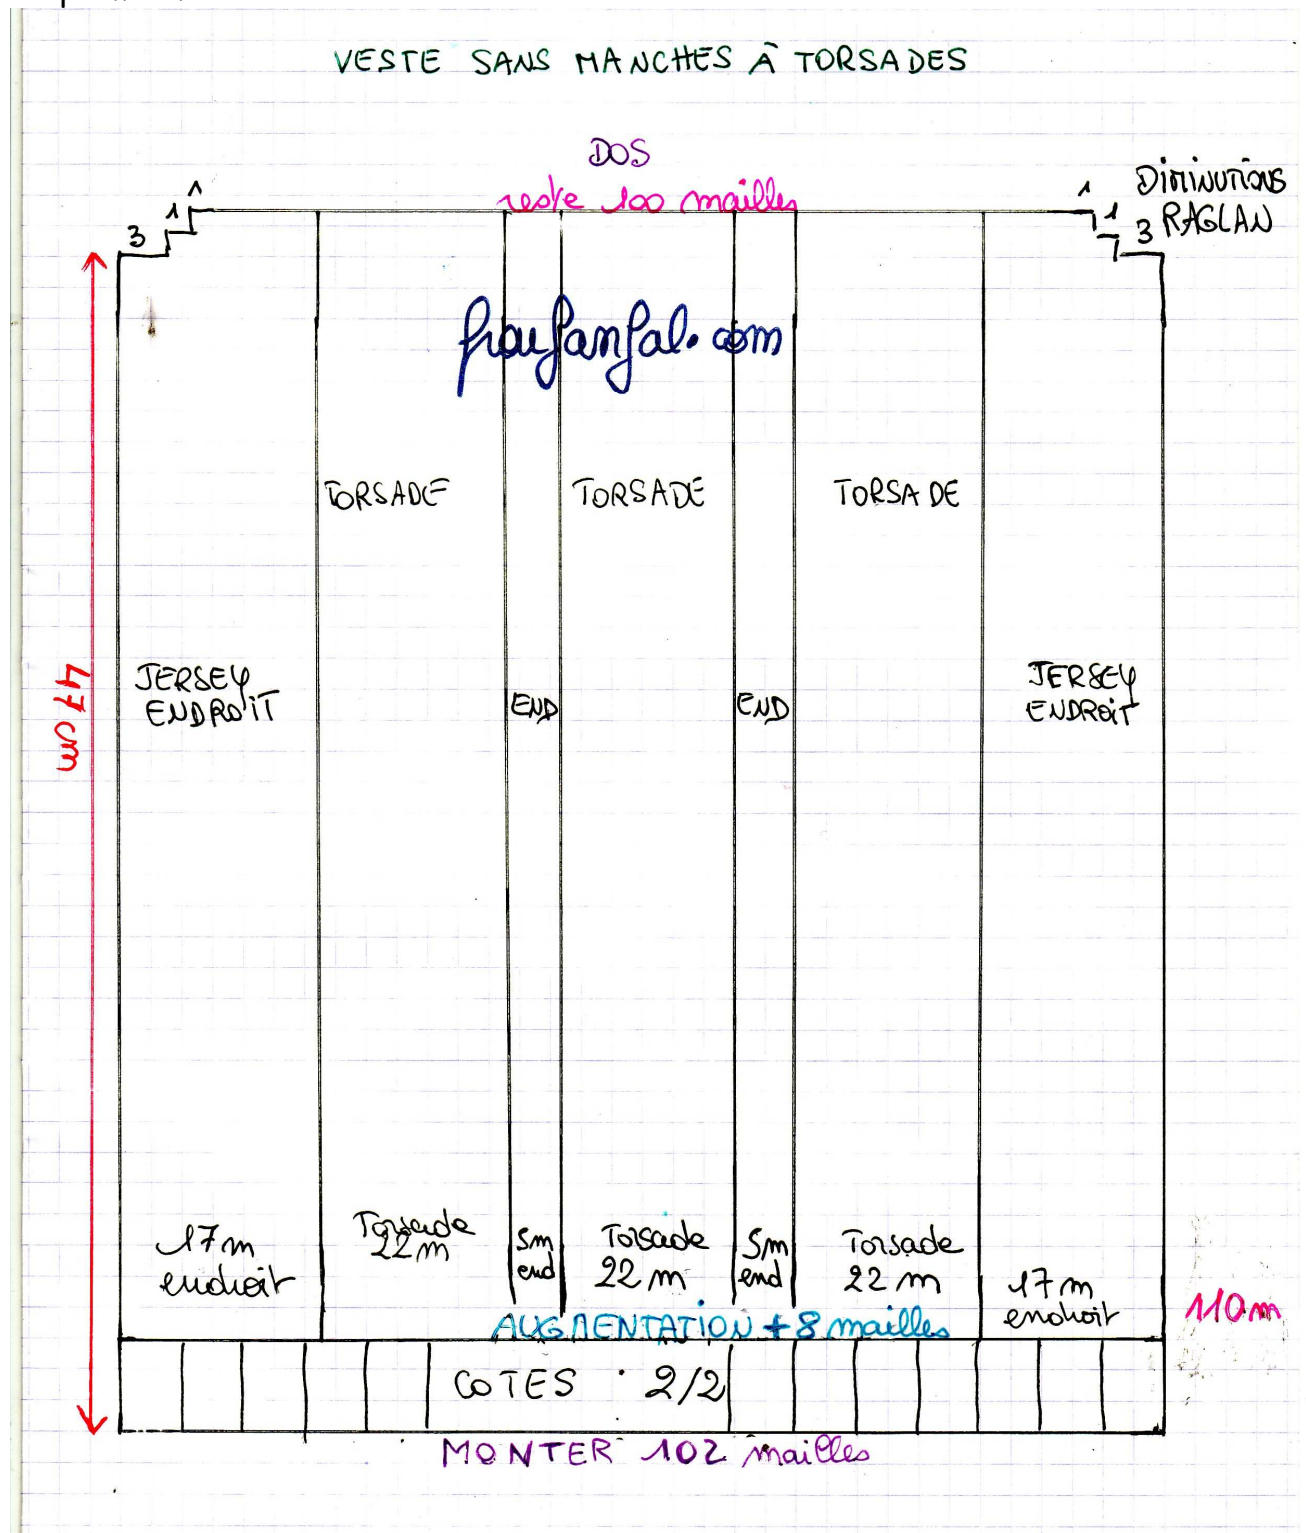 VESTE SANS MANCHES À TORSADES
DOS
reste 100 mailles
DIMINUTIONS
RAGLAN
1
1
3
1
1
3
froufanfal.com
TORSADE
TORSADE
TORSADE
47 cm
JERSEY
ENDROIT
END
END
JERSEY
ENDROIT
17 m
endroit
Torsade
22 m
5m
end
Torsade
22 m
5m
end
Torsade
22 m
17 m
endroit
110 m
AUGMENTATION + 8 mailles
COTES 2/2
MONTER 102 mailles